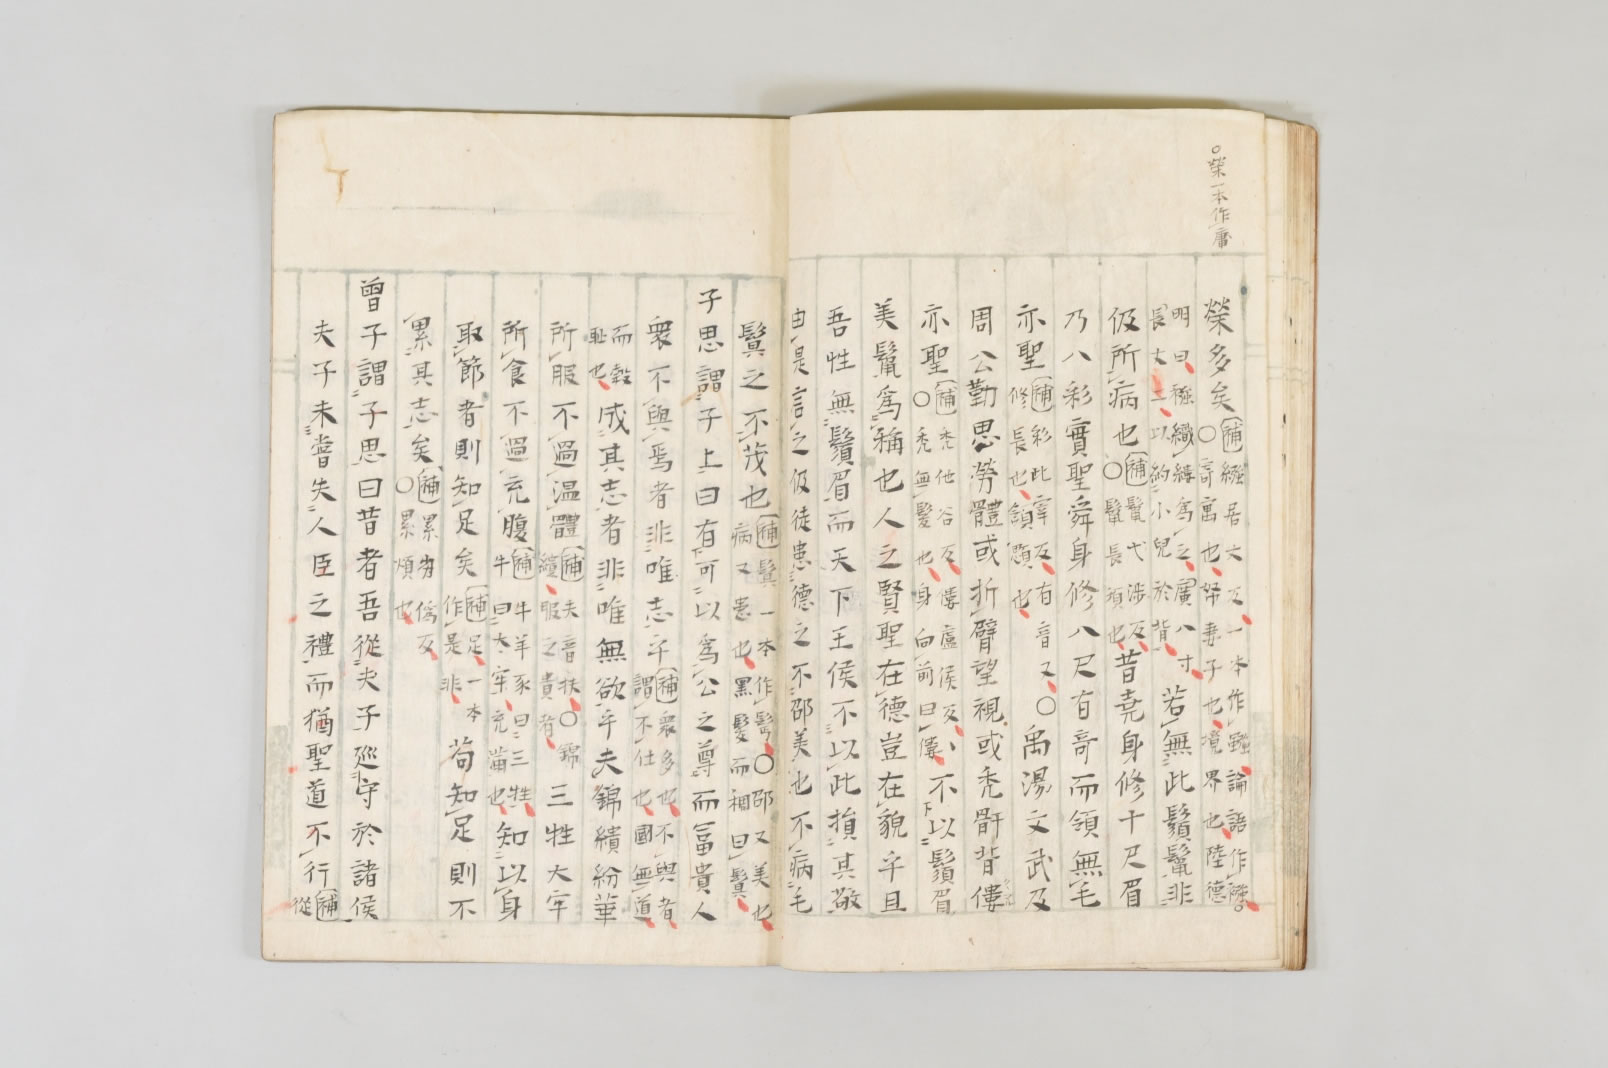 ○榮一本作庸
榮多矣補繦居大反一本作繈論語作襁○
○寄寓也帑妻子也境界也陸德
明曰襁織縷爲之廣八寸
長丈二以約小兒於背
若無此鬚鬣非
伋所病也補鬣弋涉反
○鬣長須也
昔堯身修十尺眉
乃八彩實聖舜身修八尺有奇而頷無毛
亦聖補彩此宰反有音又
修長也頷頤也
○禹湯文武及
周公勤思勞體或折臂望視或禿骭背僂
亦聖補禿他谷反僂盧侯反
○禿無髮也身向前曰僂
不以鬚眉
美鬣爲稱也人之賢聖在德豈在貌乎且
吾性無鬚眉而天下王侯不以此損其敬
由是言之伋徒患德之不邵美也不病毛
鬢之不茂也補鬢一本作髩○邵又美也
病又患也黑髮而稠曰鬢
子思謂子上曰有可以爲公之尊而富貴人
衆不與焉者非唯志乎補衆多也不與者
謂不仕也國無道
而穀
恥也
成其志者非唯無欲乎夫錦繢紛華
所服不過溫體補夫音扶○錦
繢服之貴者
三牲大牢
所食不過充腹補牛羊豕曰三牲
牛曰大牢充滿也
知以身
取節者則知足矣補足一本
作是非
苟知足則不
累其志矣補累劣僞反
○累煩也
曾子謂子思曰昔者吾從夫子巡守於諸侯
夫子未嘗失人臣之禮而猶聖道不行補
從